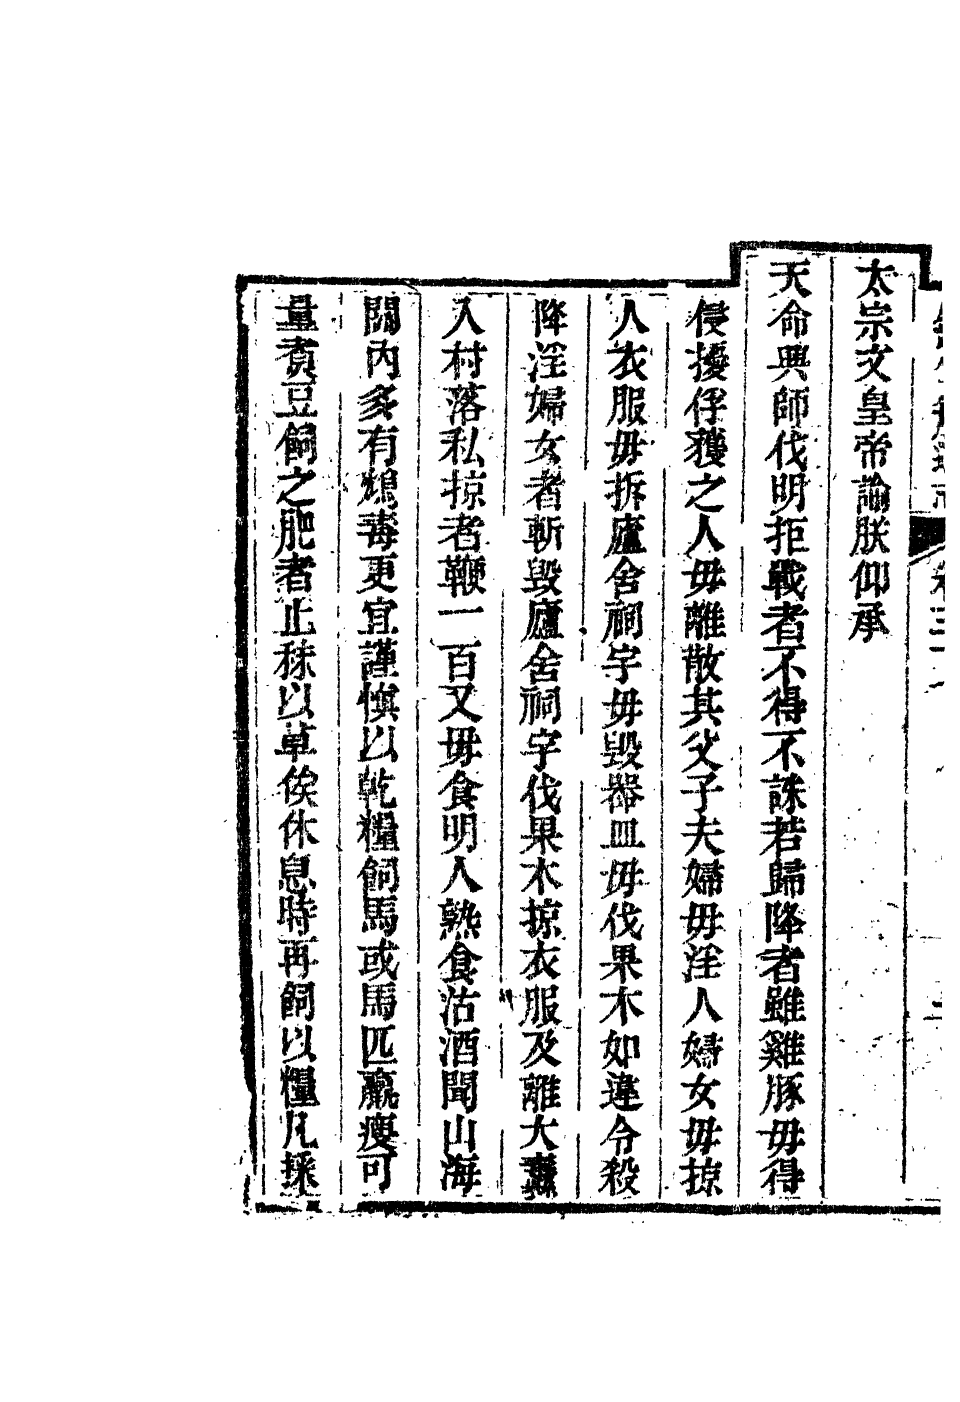 太宗文皇帝諭朕仰承
天命興師伐明拒戰者不得不誅若歸降者雖雞豚毋得
侵擾俘獲之人毋離散其父子夫婦毋淫人婦女毋掠
人衣服毋拆廬舍祠宇毋毀器皿毋伐果木如違令殺
降淫婦女者斬毀廬舍祠宇伐果木掠衣服及離大纛
入村落私掠者鞭一百又毋食明人熟食沽酒聞山海
關內多有鴆毒更宜謹慎以乾糧飼馬或馬匹羸瘦可
量煮豆飼之肥者止秣以草俟休息時再飼以糧凡採